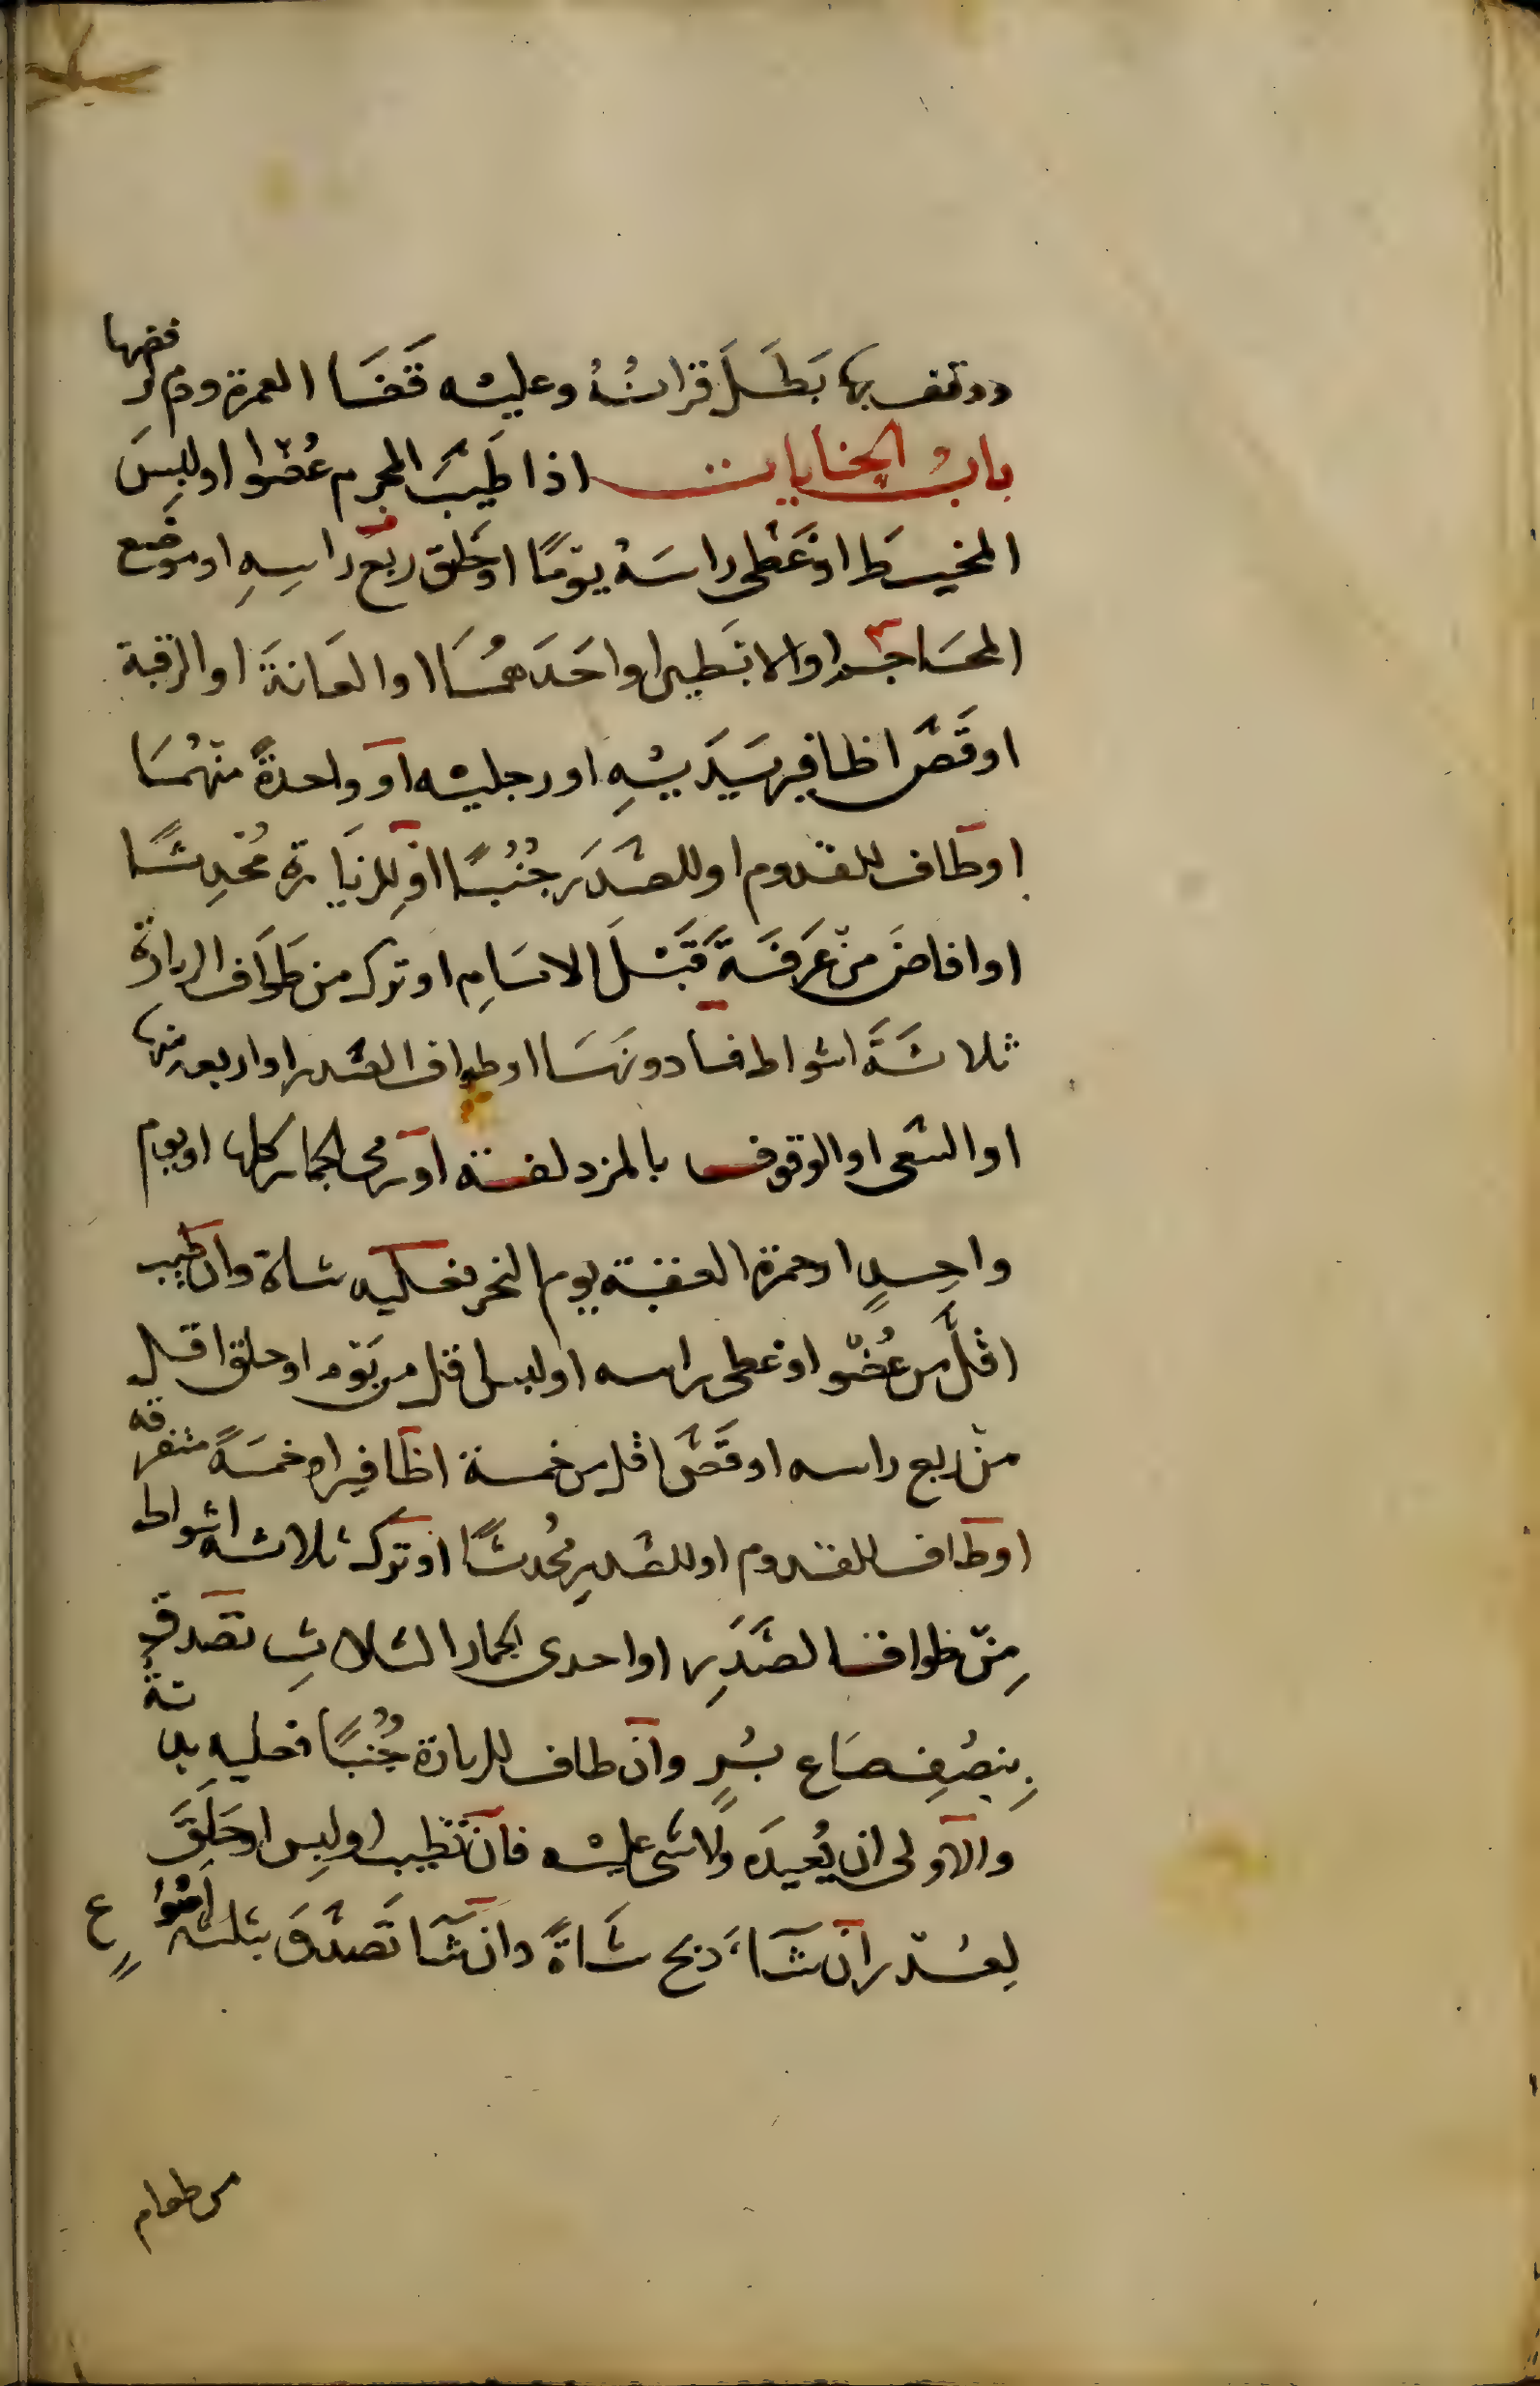 ووقف بها بَطَلَ قرانُهُ وعليه قَضَا العمرة ودم لرفضها
بابُ الجنايات اذا طَيَّبَ المحرم عُضْوا اولبِسَ
المخيط اوْغَطى راسَهُ يوْمًا اوحَلق ربع راسِهِ اوموْضع
المحَاجم اوالابطين اواحَدَهمَا اوالعَانَةَ اوالرقبة
اوقَصَّ اظافير يَدَيْهِ اورجليْه اوْ واحدةً منهُمَا
اوطَاف للقدوم اوللصَّدَر جُنُبًا اوْلِلزيَارة مُحْدِثًا
اوافاضَ مِنْ عَرَفَةَ قَبْلَ الامَامِ اوترك من طَوَاف الزيارة
ثلاثَةَ اشواط فما دونهَا اوطواف الصَّدر اواربعه منها
اوالسَّعى اوالوقوف بالمزدلفة اوْرمى الجمار كلها اويوم
واحِدٍ اوجمرة العقبة يوم النحر فعَليه شاة وان طيب
اقلَّ من عُضْو اوْغطى راسه اولبس اقل من يَوْم اوحلق اقل
منْ ربع راسه اوقَصَّ اقل من خمسة اظافير اوخمسَةً متفرقه
اوطَاف للقدوم اوللصَّدرِ مُحْدثًا اوْتَرك ثلاثه اشواط
مِنْ طواف الصَّدَرِ اواحدى الجمار الثلاثِ تصَدق
بِنِصْفِ صَاع بُرٍ وانْ طاف للزيارة جُنُبًا فعليه بدنةٌ
والاَولى ان يُعيدَه ولاشى عليْه فانْ تطيب اولبِس اوحَلَقَ
لِعُذْرٍ انْ شَآءَ ذبح شَاةً وانْ شَآ تَصَدَّقَ بثلثه اصْوُعٍ
من طعام